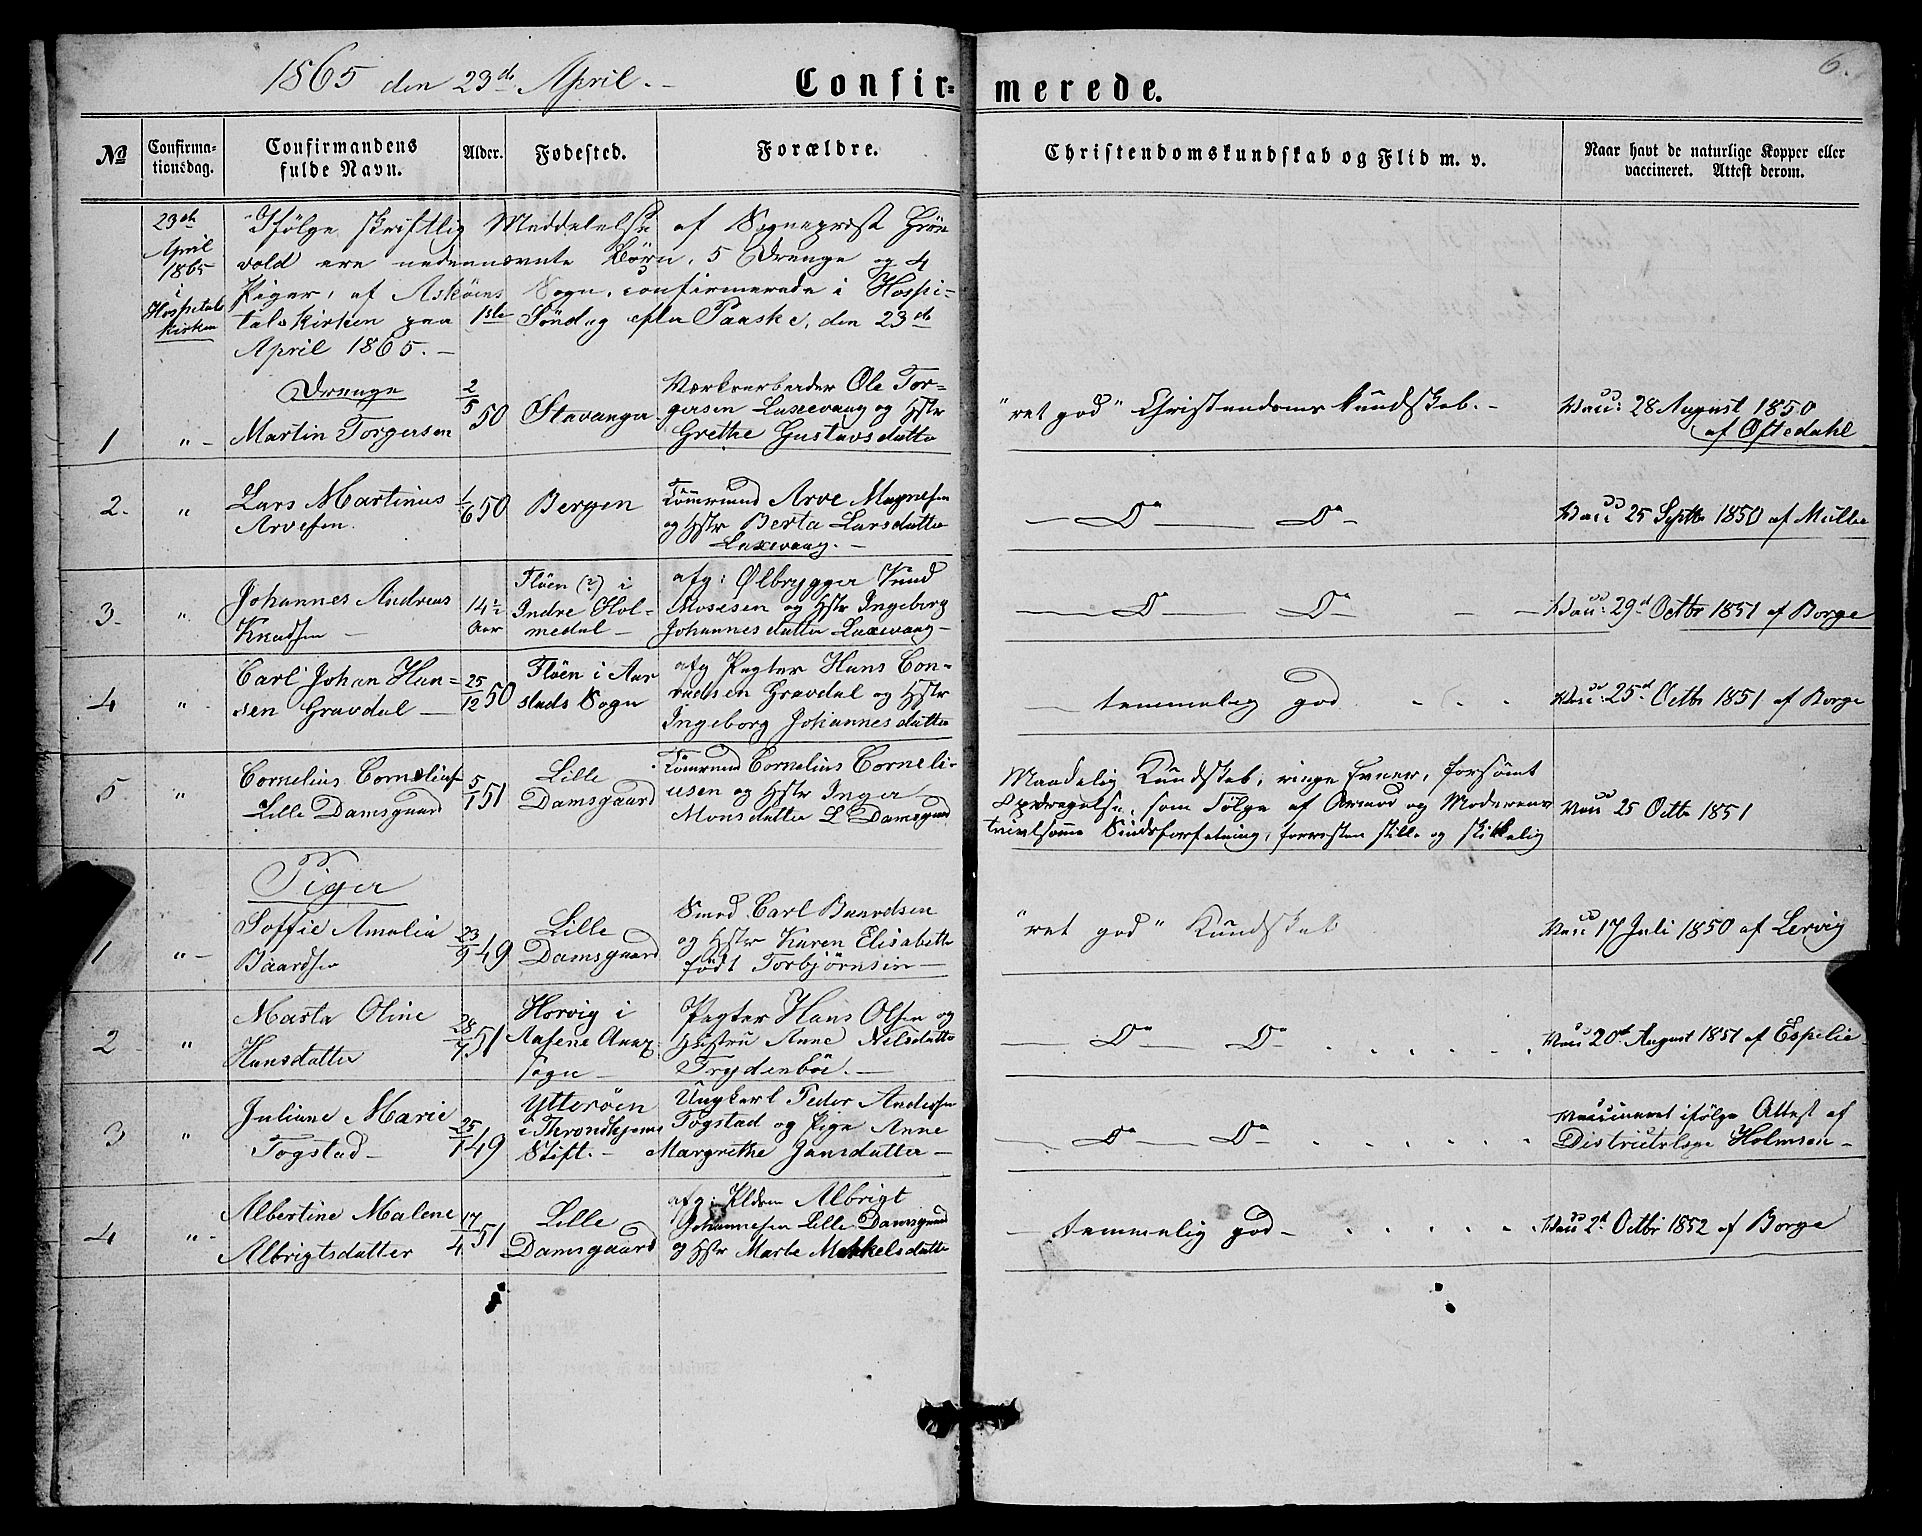 6.
1865 den 23de April. -
Confirmerede.
No
Confirmationsdag.
Confirmandens fulde Navn.
Alder.
Fødested.
Forældre.
Christendomskundskab og Flid m. v.
Naar havt de naturlige Kopper eller vaccineret. Attest derom.
23de
April
1865
i
Hospitals
kirken
Ifølge skriftlig Meddelelse af Sognepræst Grön
vold ere nedennævnte Börn, 5 Drenge og 4
Piger, af Asköens Sogn, confirmerede i Hospi-
talskirken paa 1ste Söndag efter Paaske, den 23de
April 1865. -
Drenge
1
" -
Martin Torgersen
2/5 50
Stavanger
Værksarbeider Ole Tor-
gersen Laxevaag og Hstr
Grethe Gustavsdatter
"ret god" Christendoms kundskab. -
Vacc: 28 August 1850
af Oftedahl
2.
"
Lars Martinus
Arvesen.
1/6 50
Bergen
Tömmermd Arve Magnesen
og Hstr Berta Larsdatter
Laxevaag. -
Do Do -
Vacc 25 Septbr 1850 af Müller
3.
"
Johannes Andreas
Knudsen -
14 1/2
Aar
Flöen (?) i
Indre Hol-
medal -
afg: Ølbrygger Knud
Mosesen og Hstr Ingeborg
Johannesdatter Laxevaag -
Do Do - -
Vacc: 29de Octbr 1851 af Borge
4
"
Carl Johan Han-
sen Gravdal -
25/12 50
Flöen i Aar
stads Sogn
afg Pagter Hans Con-
radsen Gravdal og Hstr
Ingeborg Johannesdatter
temmelig god
Vacc: 25de Octbr 1851 af Borge
5
"
Cornelius Corneliusen
Lille Damsgaard
5/1 51
Lille
Damsgaard
Tömmermd Cornelius Corneli-
usen og Hstr Inger
Monsdatter L Damsgaard
Maadelig Kundskab, ringe Evner, forsömt
Opdragelse, som Fölge af Armod og Moderens
tvivlsomme Sindsforfatning, forresten stille og skikkelig
Vacc 25 Octbr 1851
Piger
1
" -
Soffie Amalia
Baardsen
23/9 49
Lille
Damsgaard
Smed Carl Baardsen
og Hstr Karen Elisabeth
født Torbjørnsen -
"ret god" Kundskab
Vacc 17 Juli 1850 af Lervig
2
"
Marta Oline
Hansdatter
28/1 51
Horvig i
Aasene Anex
Sogn -
Pagter Hans Olsen og
Hustru Anne Nilsdatter
Frydenböe. -
Do Do
Vacc 20de August 1851 af Espelie
3
"
Juliane Marie
Togstad -
25/1 49
Ytterøen
i Throndhjems
Stift. -
Ungkarl Peder Andersen
Togstad og Pige Anne
Margrethe Jansdatter -
Do Do -
Vaccineret ifölge Attest af
Districtslæge Holmsen -
4
" -
Albertine Malene
Albrigtsdatter
17/4 51
Lille
Damsgaard
afg: Albrigt
Johannesen Lille Damsgaard
og Hstr Marte Mikkelsdatter
temmelig god -
Vacc 2de Octbr 1852 af Borge